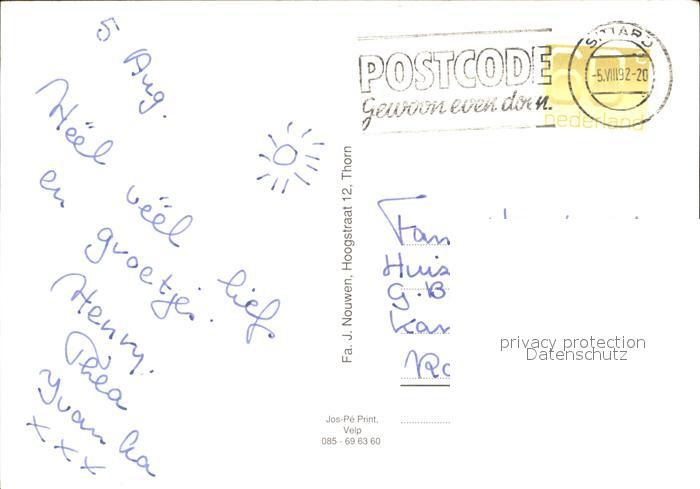 5 Aug.
Héél véél liefs
en groetjes.
Henny.
Thea
Yvonka
x x x
Fa. J. Nouwen, Hoogstraat 12, Thorn
Jos-Pé Print,
Velp
085 - 69 63 60
POSTCODE
Gewoon even doen.
SITTARD
-5.VIII92-20
nederland
Fam
Huis
G.B
Kan
privacy protection
Datenschutz